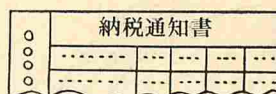 納税通知書